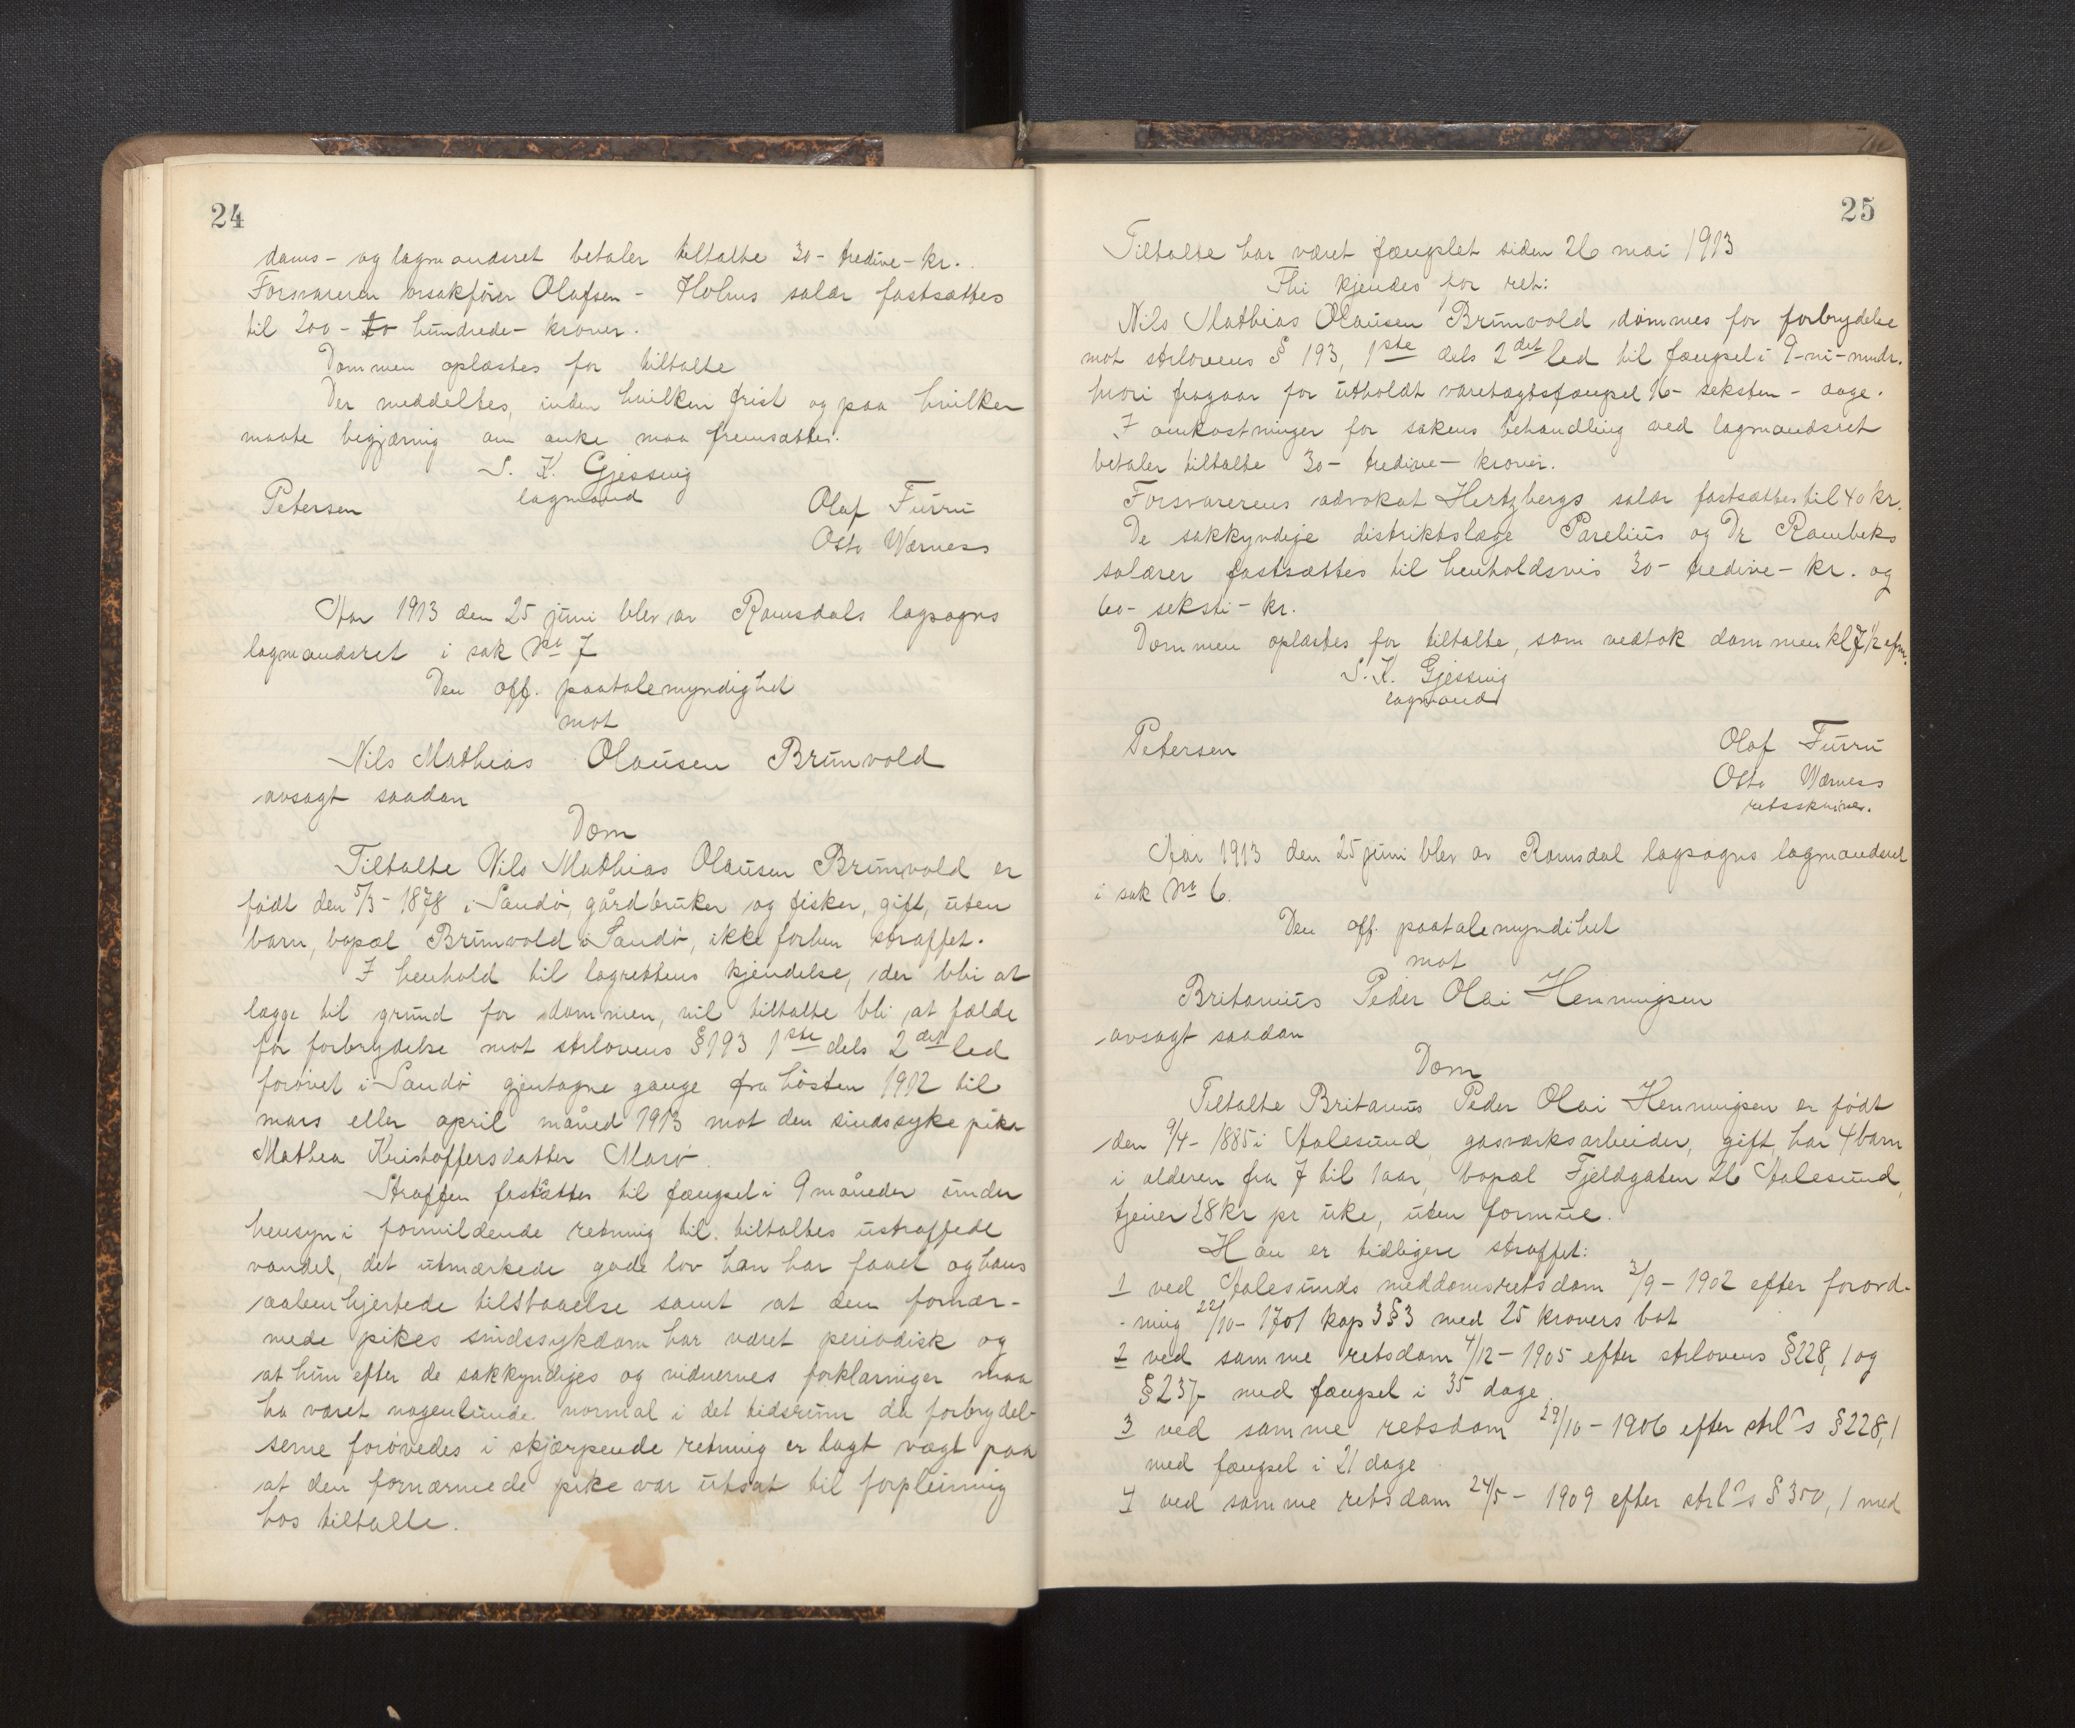 24
doms- og lagmandsret betaler tiltalte 30- tredive- kr.
Forsvareren orsakfører Olafsen - Holms salær fastsættes
til 200- to hundrede- kroner.
Dommen oplæstes for tiltalte
Der meddeltes, inden hvilken frist og paa hvilken
maate begjæring om anke maa fremsættes.
S. K. Gjessing
lagmand
Petersen
Olaf Furru
Otto Wærness
Aar 1913 den 25 juni blev av Romsdals lagsogns
lagmandsret i sak No 7
Den off. paatalemyndighet
mot
Nils Mathias Olausen Brunvold
avsagt saadan
Dom
Tiltalte Nils Mathias Olausen Brunvold er
født den 5/3- 1878 i Sandø, gårdbruker og fisker, gift, uten
barn, bopæl Brunvold i Sandø, ikke forhen straffet.
I henhold til lagrettens kjendelse, der bli at
lægge til grund for dommen, vil tiltalte bli at fælde
for forbrydelse mot strlovens § 193 1ste dels 2det led
forøvet i Sandø gjentagne gange fra høsten 1912 til
mars eller april måned 1913 mot den sindssyke pike
Mathea Kristoffersdatter Marø.
Straffen fastsættes til fængsel i 9 måneder under
hensyn i formildende retning til tiltaltes ustraffede
vandel, det utmærkede gode lov han har faaet og hans
aabenhjertede tilstaaelse samt at den fornær-
mede pikes sindssykdom har været periodisk og
at hun efter de sakkyndiges og vidnernes forklaringer maa
ha været nogenlunde normal i det tidsrum da forbrydel-
serne forøvedes i skjærpende retning er lagt vægt paa
at den fornærmede pike var utsat til forpleining
hos tiltalte.
25
Tiltalte har været fængslet siden 26 mai 1913
Thi kjendes for ret:
Nils Mathias Olausen Brunvold dømmes for forbrydelse
mot strlovens § 193, 1ste dels 2det led til fængsel i 9-ni-mndr.
hvori fragaar for utholdt varetægtsfængsel 16- seksten - dage.
I omkostninger for sakens behandling ved lagmandsret
betaler tiltalte 30- tredive- kroner.
Forsvarerens advokat Hertzbergs salær fastsættes til 40 kr.
De sakkyndige distriktslæge Parelius og Dr Rambeks
salærer fastsættes til henholdsvis 30- tredive- kr. og
60- seksti- kr.
Dommen oplæstes for tiltalte, som vedtok dommen kl 7 1/2 efm.
S. K. Gjessing
lagmand
Petersen
Olaf Furru
Otto Wærness
retsskriver.
Aar 1913 den 25 juni blev av Romsdal lagsogns lagmandsret
i sak No 6.
Den off. paatalemyndihet
mot
Britanius Peder Olai Henningsen
avsagt saadan
Dom
Tiltalte Britanius Peder Olai Henningsen er født
den 9/4- 1885 i Aalesund, gasværksarbeider, gift, har 4 barn
i alderen fra 7 til 1 aar, bopæl Fjeldgaten 26 Aalesund,
tjener 28 kr pr uke, uten formue.
Han er tidligere straffet:
1 ved Aalesunds meddomsretsdom 3/9- 1902 efter forord-
-ning 22/10- 1701 kap 3 § 3 med 25 kroners bot
2 ved samme retsdom 4/12- 1905 efter strlovens § 228, 1 og
§ 237 med fængsel i 35 dage.
3 ved samme retsdom 29/10- 1906 efter strl's § 228, 1
med fængsel i 21 dage.
4 ved samme retsdom 24/5- 1909 efter strl's § 350, 1 med